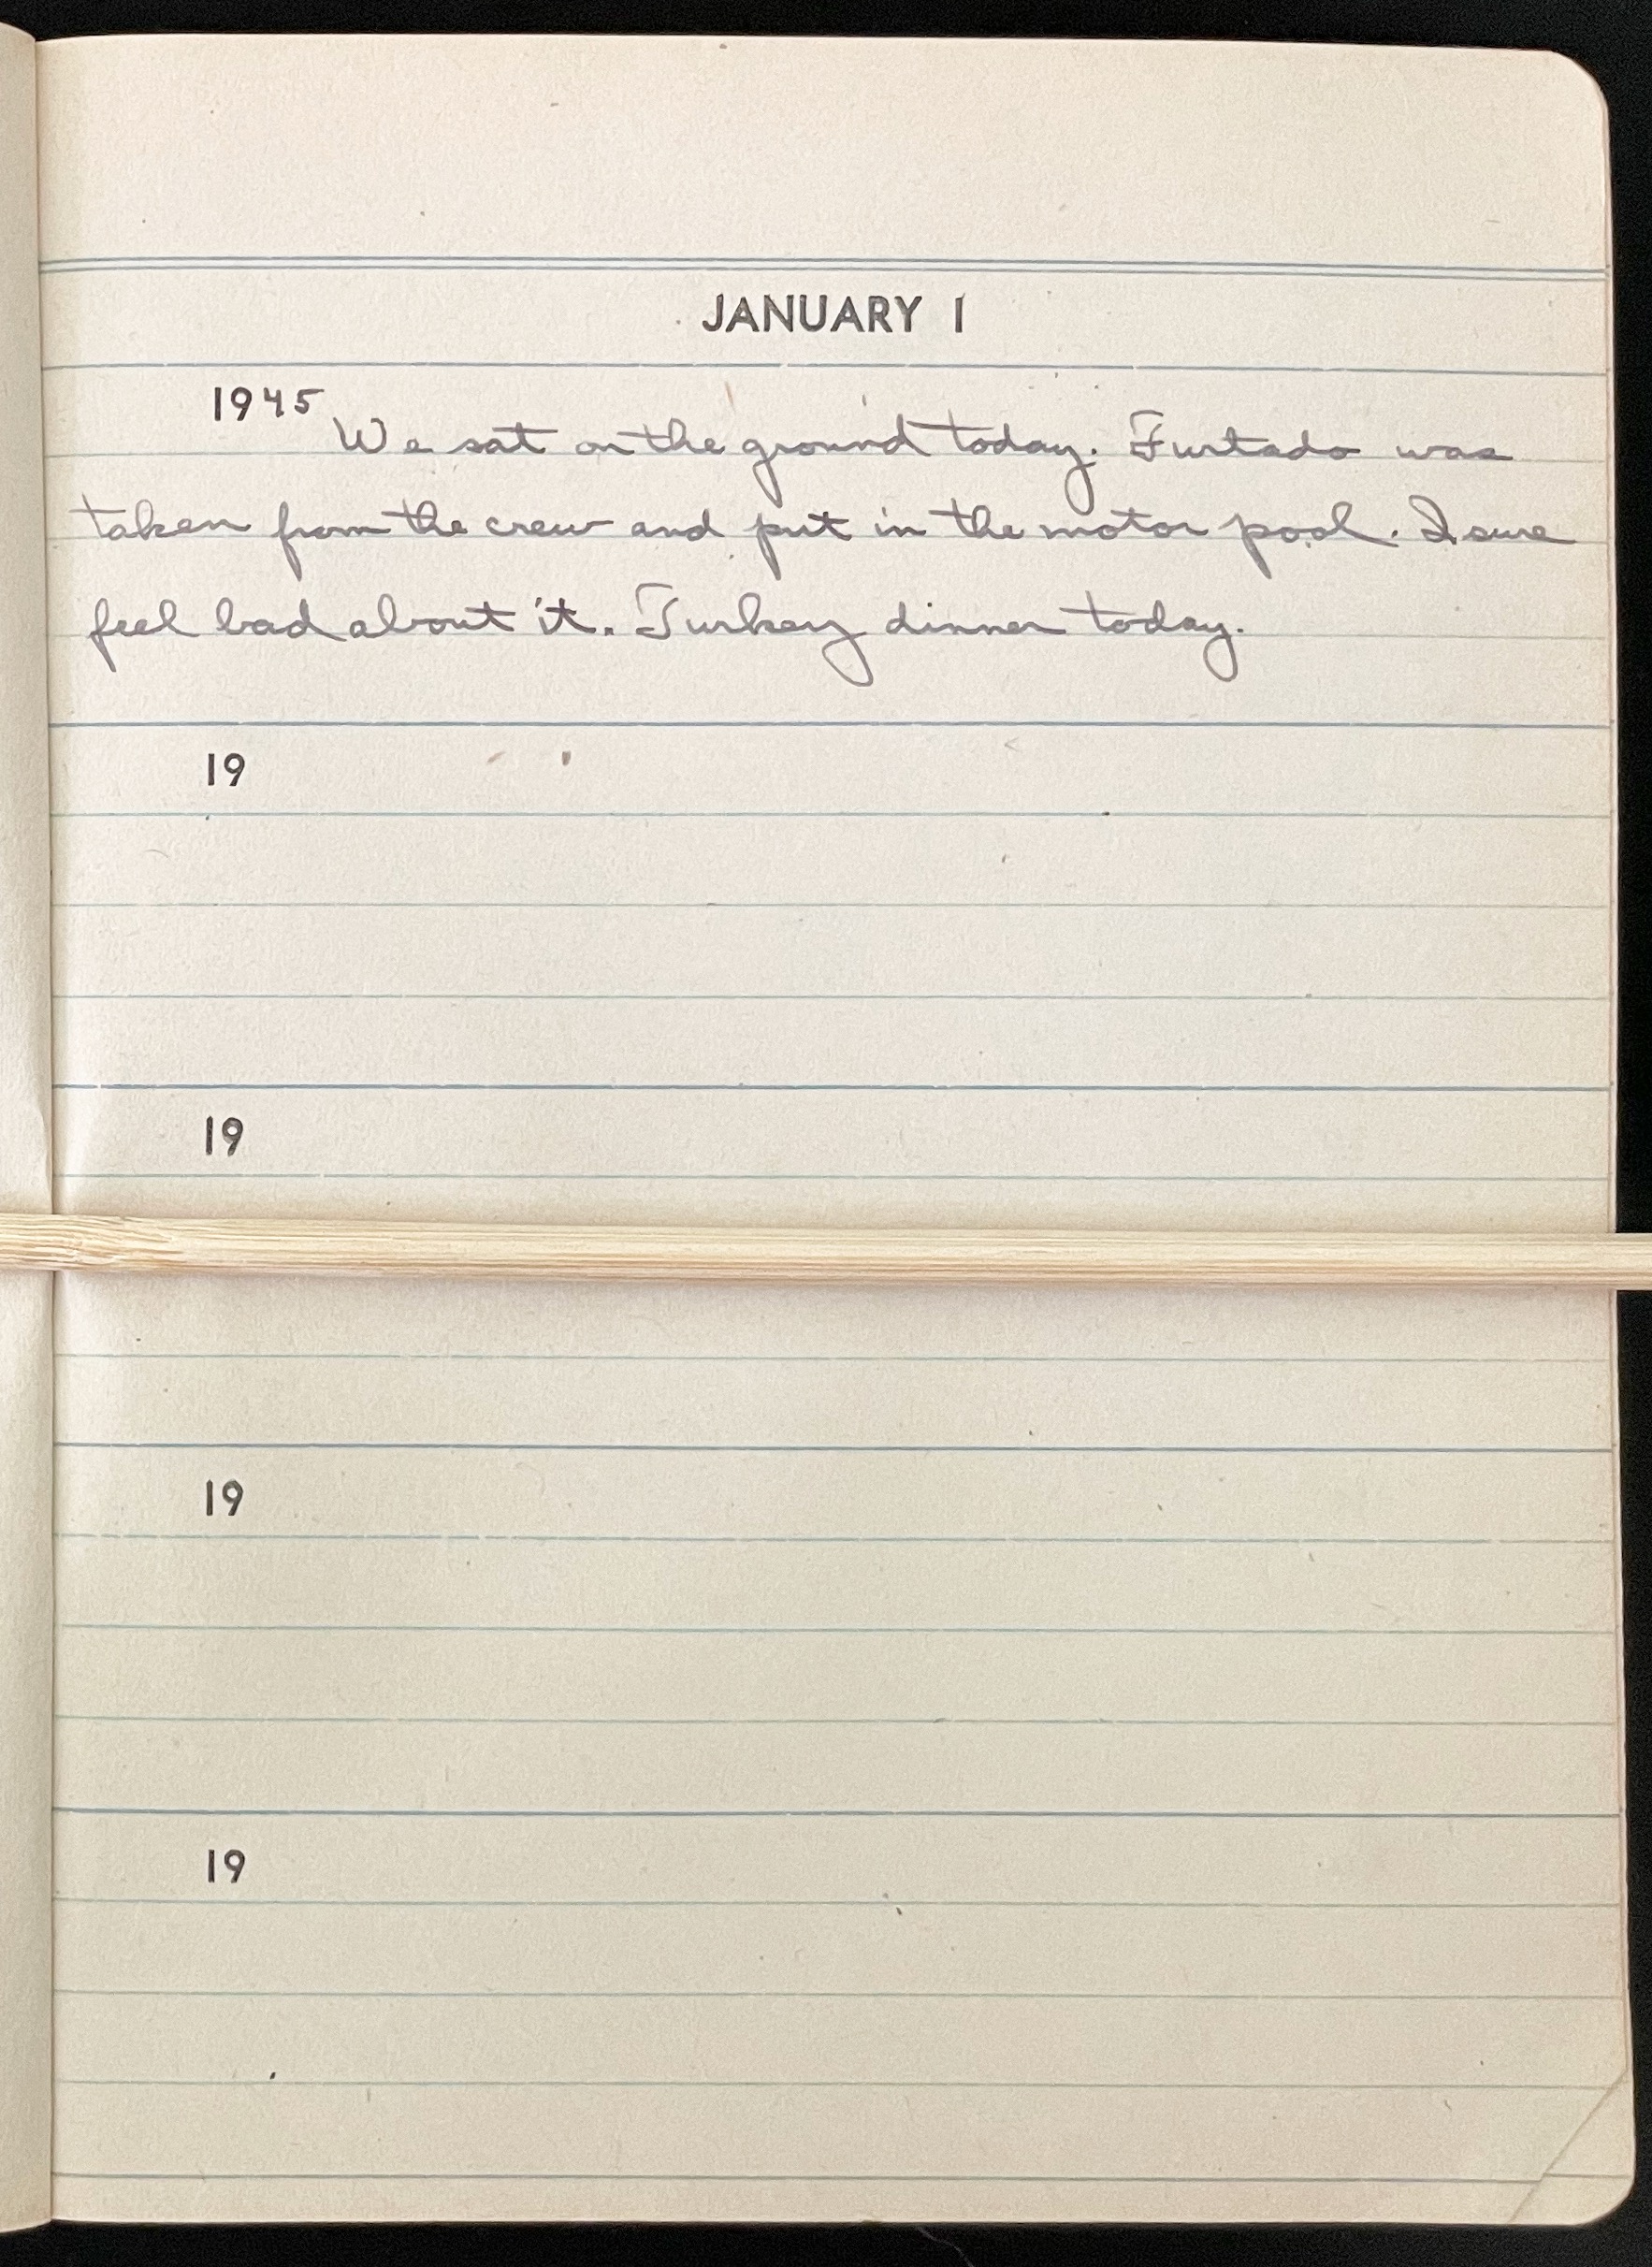 JANUARY 1
1945
We sat on the ground today. Furtado was
taken from the crew and put in the motor pool. I sure
feel bad about it. Turkey dinner today.
19
19
19
19